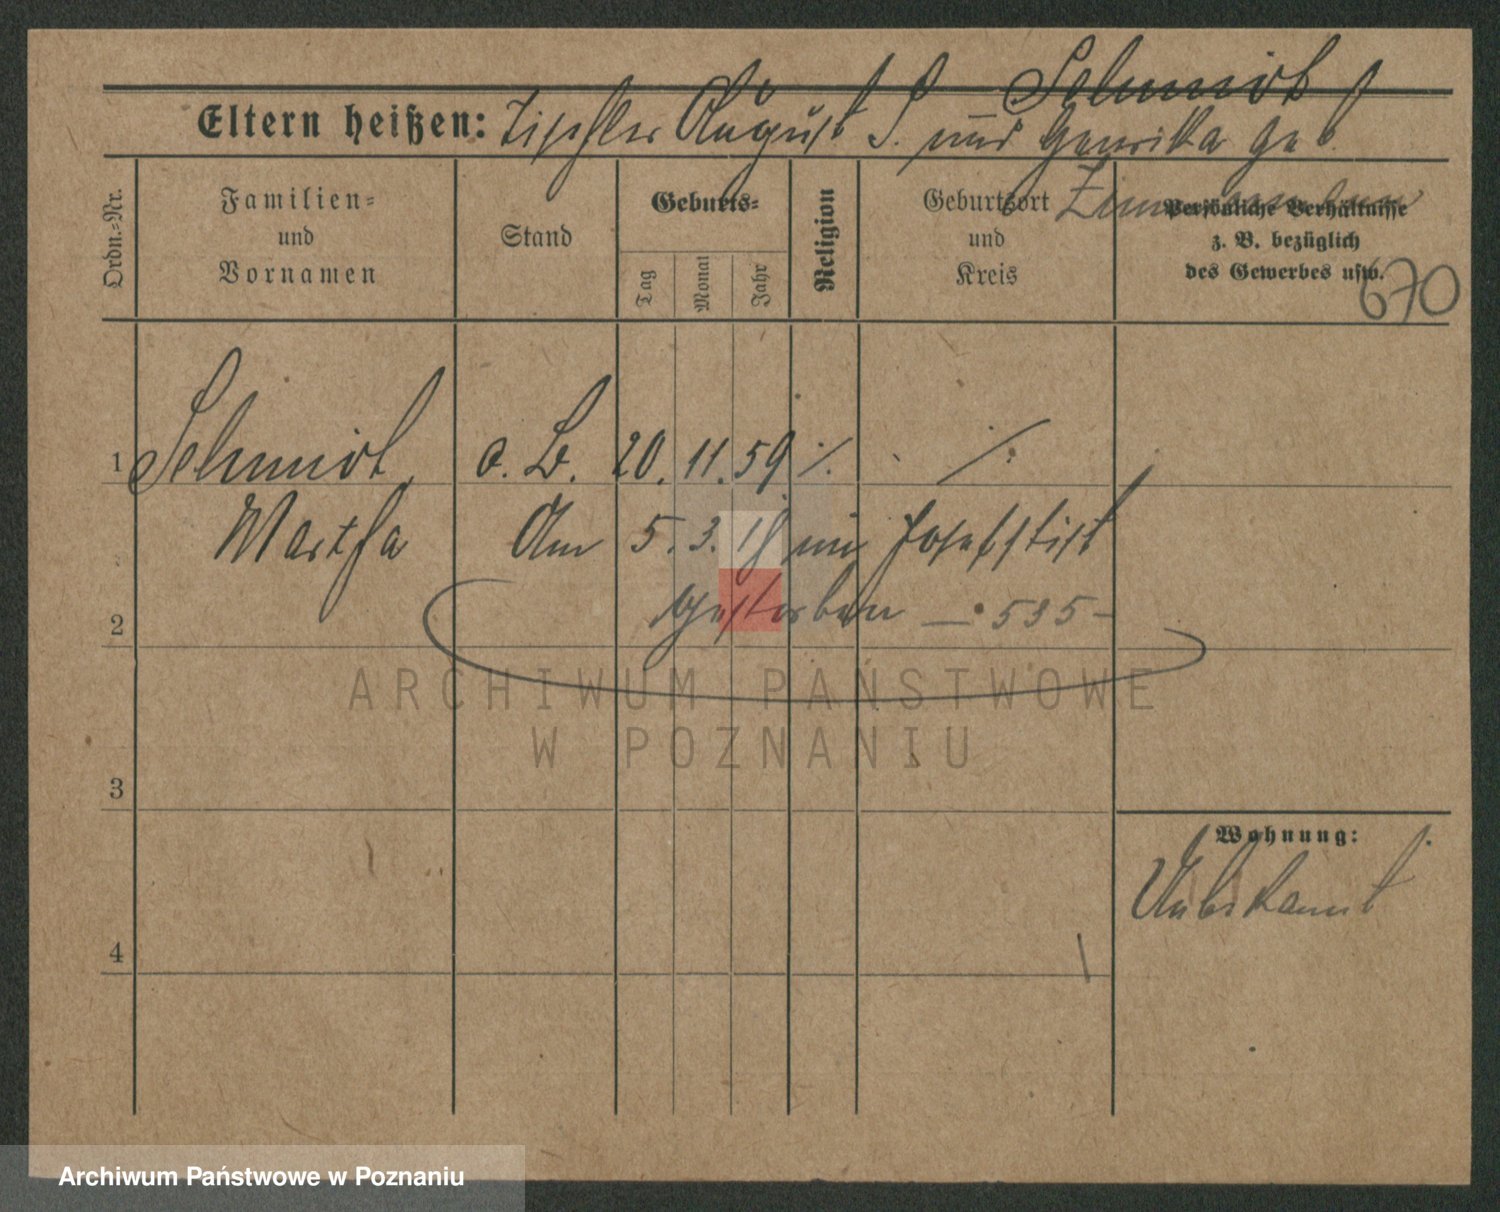 Schmidt
Eltern heißen: Tischler August S. und Henrika geb.
Zimmermann
Ordn.-Nr.
Familien-
und
Vornamen
Stand
Geburts-
Tag
Monat
Jahr
Religion
Geburtsort
und
Kreis
Persönliche Verhältnisse
z. B. bezüglich
des Gewerbes usw.
670
1 Schmidt, o. B. 20. 11. 59 ·/. ·/.
Martha Am 5. 3. 19 im Josefstift
2 gestorben — 535 —
3
Wohnung:
Unbekannt
4
ARCHIWUM PAŃSTWOWE
W POZNANIU
Archiwum Państwowe w Poznaniu